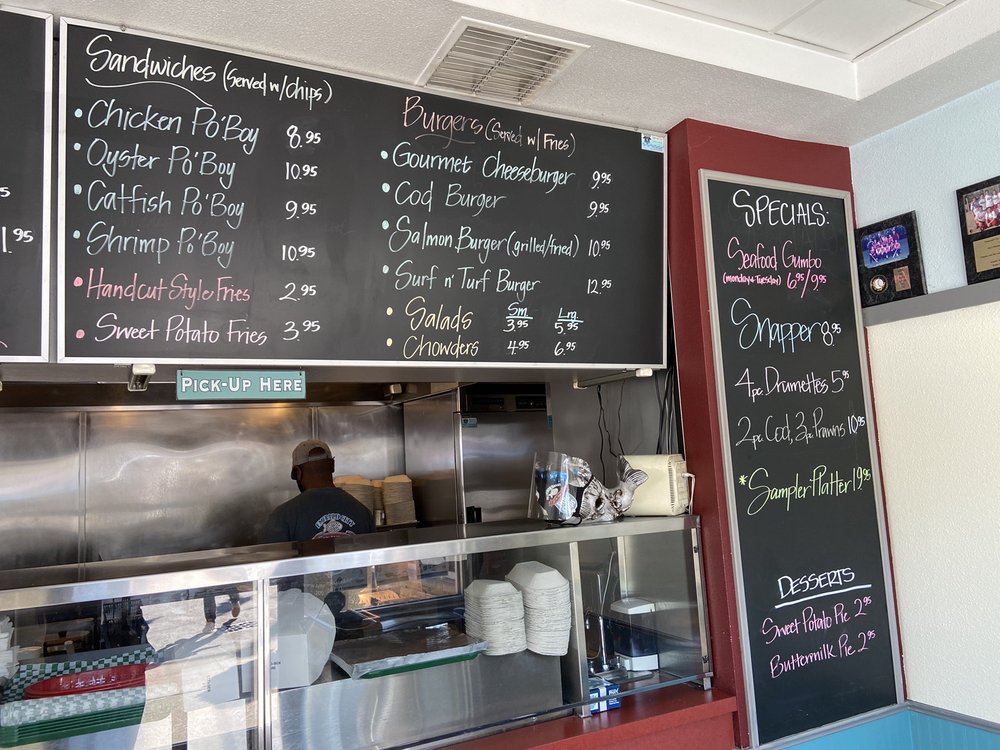 1.95
Sandwiches (Served w/Chips)
• Chicken Po'Boy 8.95
• Oyster Po'Boy 10.95
• Catfish Po'Boy 9.95
• Shrimp Po'Boy 10.95
• Handcut Style Fries 2.95
• Sweet Potato Fries 3.95
Burgers (Served w/ Fries)
• Gourmet Cheeseburger 9.95
• Cod Burger 9.95
• Salmon Burger (grilled/fried) 10.95
• Surf n' Turf Burger 12.95
Sm Lrg
• Salads 3.95 5.95
• Chowders 4.95 6.95
PICK-UP HERE
SPECIALS:
Seafood Gumbo
(monday & Tuesday) 6.95/9.95
Snapper 8.95
4pc. Drumettes 5.95
2pc. Cod, 3pc. Prawns 10.95
* Sampler Platter 19.95
DESSERTS
Sweet Potato Pie 2.95
Buttermilk Pie 2.95